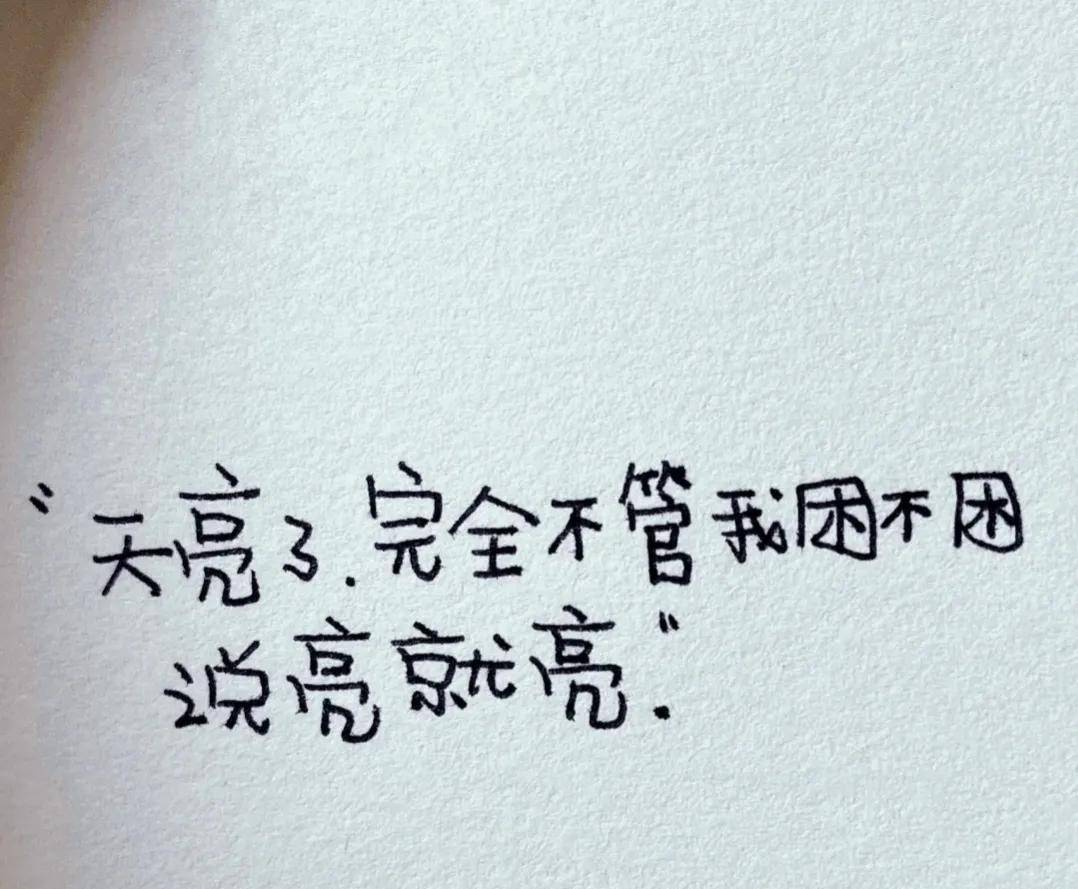 “天亮了.完全不管我困不困
说亮就亮.”